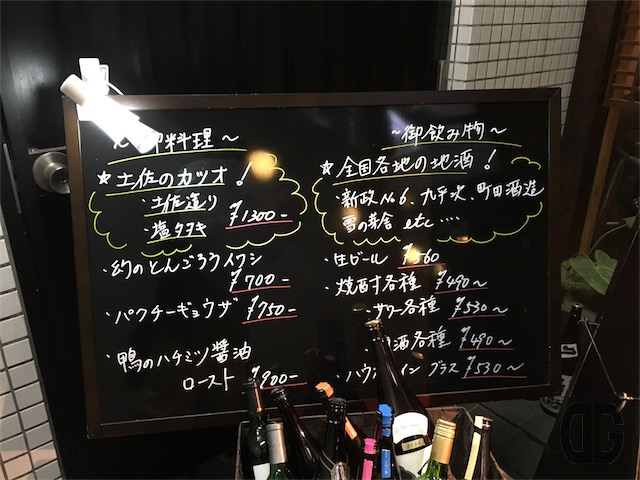 御料理 ～
★ 土佐のカツオ！
・土佐造り
・塩タタキ
¥1300-
・幻のとんごろうイワシ
¥700-
・パクチーギョウザ ¥750-
・鴨のハチミツ醤油
ロースト ¥900-
～御飲み物～
★ 全国各地の地酒！
・新政No6、九平次、町田酒造
雪の茅舎 etc ....
・生ビール ¥560
・焼酎各種 ¥490～
・サワー各種 ¥530～
酒各種 ¥490～
・ハウスワイン グラス ¥530～
DG